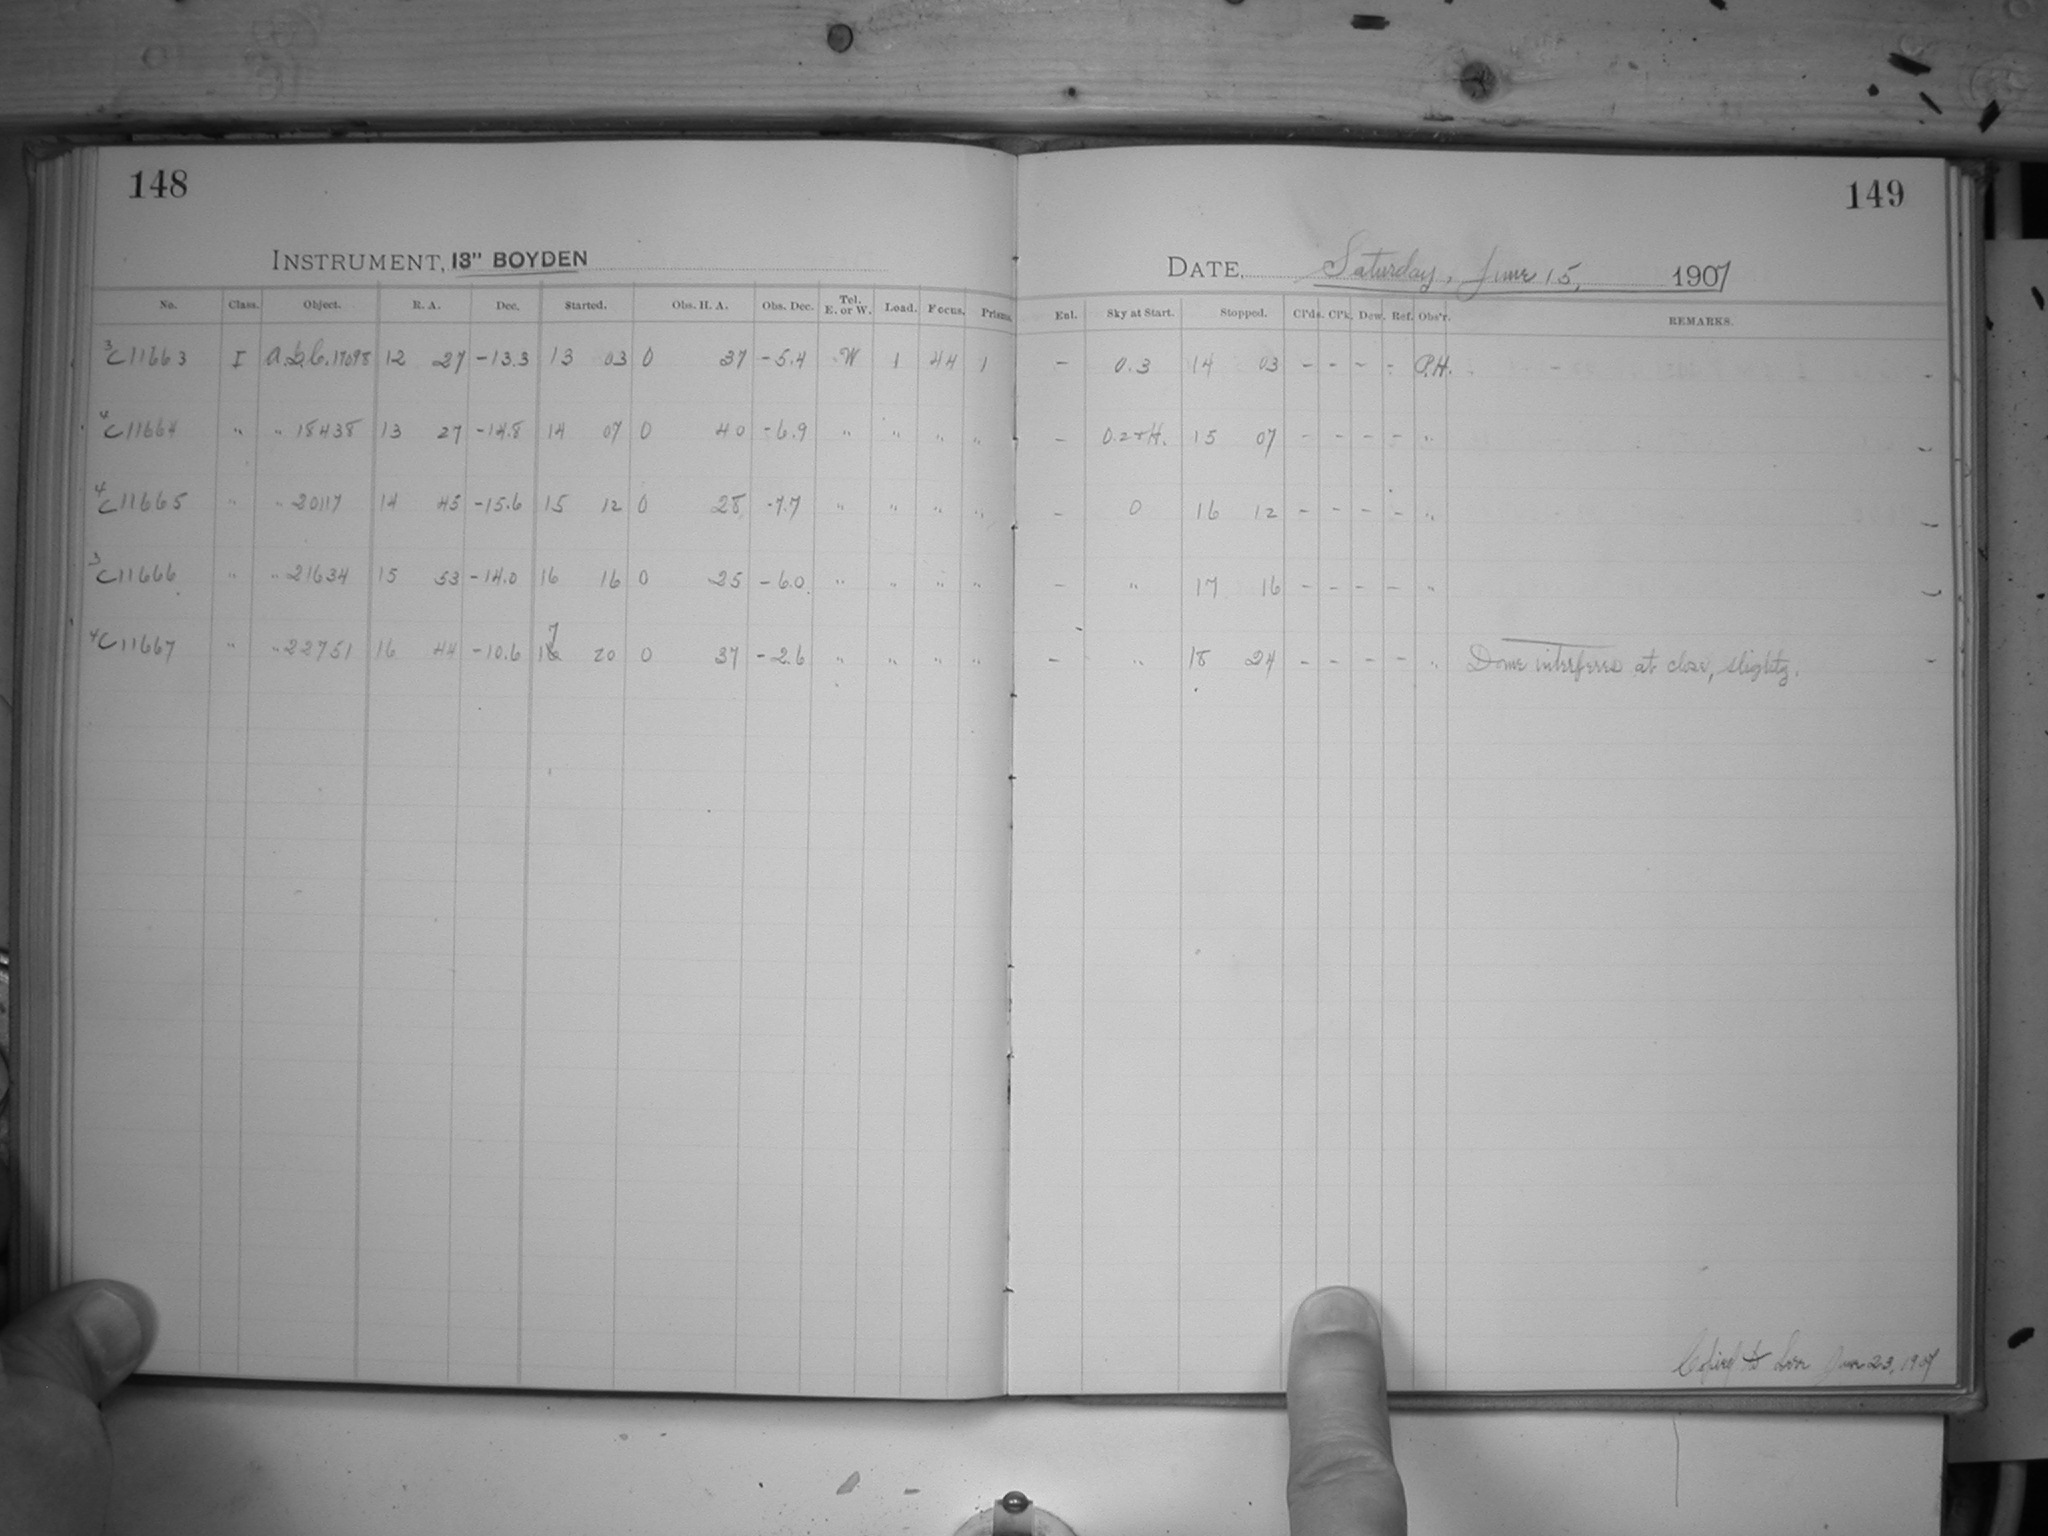 148
INSTRUMENT, 13" BOYDEN
No. Class. Object. R. A. Dec. Started. Obs. H. A. Obs. Dec. Tel. E. or W. Load. Focus. Prisms.
3 C11663 I A.G.C. 17098 12 27 -13.3 13 03 0 37 -5.4 W 1 44 1
4 C11664 " " 18438 13 27 -14.8 14 07 0 40 -6.9 " " " "
4 C11665 " " 20117 14 45 -15.6 15 12 0 28 -7.7 " " " "
3 C11666 " " 21634 15 53 -14.0 16 16 0 25 -6.0 " " " "
4 C11667 " " 22751 16 44 -10.6 17 20 0 37 -2.6 " " " "
149
DATE, Saturday, June 15, 1907
Enl. Sky at Start. Stopped. Cl'ds. Cl'k. Dew. Ref. Obs'r. REMARKS.
– 0.3 14 03 – – – – P.H.
– 15 07 – – – – "
– 0 16 12 – – – – "
– " 17 16 – – – – "
– " 18 24 – – – – " Dome interferes at close, slightly.
Copied to June 23, 1907